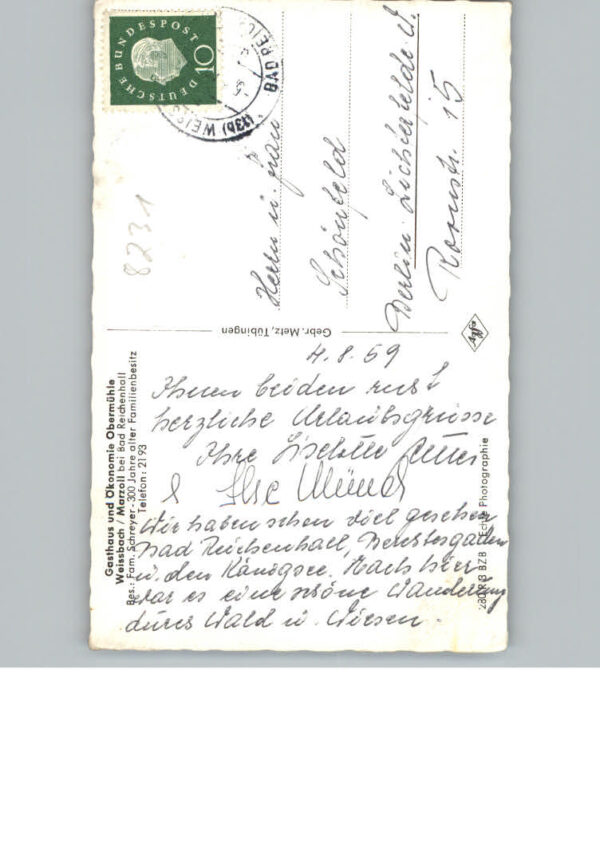 Gasthaus und Ökonomie Obermühle
Weissbach / Marzoll bei Bad Reichenhall
Bes.: Fam. Schreyer - 300 Jahre alter Familienbesitz
Telefon: 2193
4.8.59
Ihnen beiden
herzliche Urlaubsgrüsse
Ihre Liselotte
& Ilse
Wir haben schon viel gesehen
Bad Reichenhall, Berchtesgaden
u. den Königsee. Nach hier
war es eine schöne Wanderung
durch Wald u. Wiesen.
Gebr. Metz, Tübingen
DEUTSCHE BUNDESPOST
10
(13b) WEISS
BAD REICH
8231
Herrn u. Frau
Schönfeld
Berlin-Lichterfelde W.
15
Echte Photographie
BZB